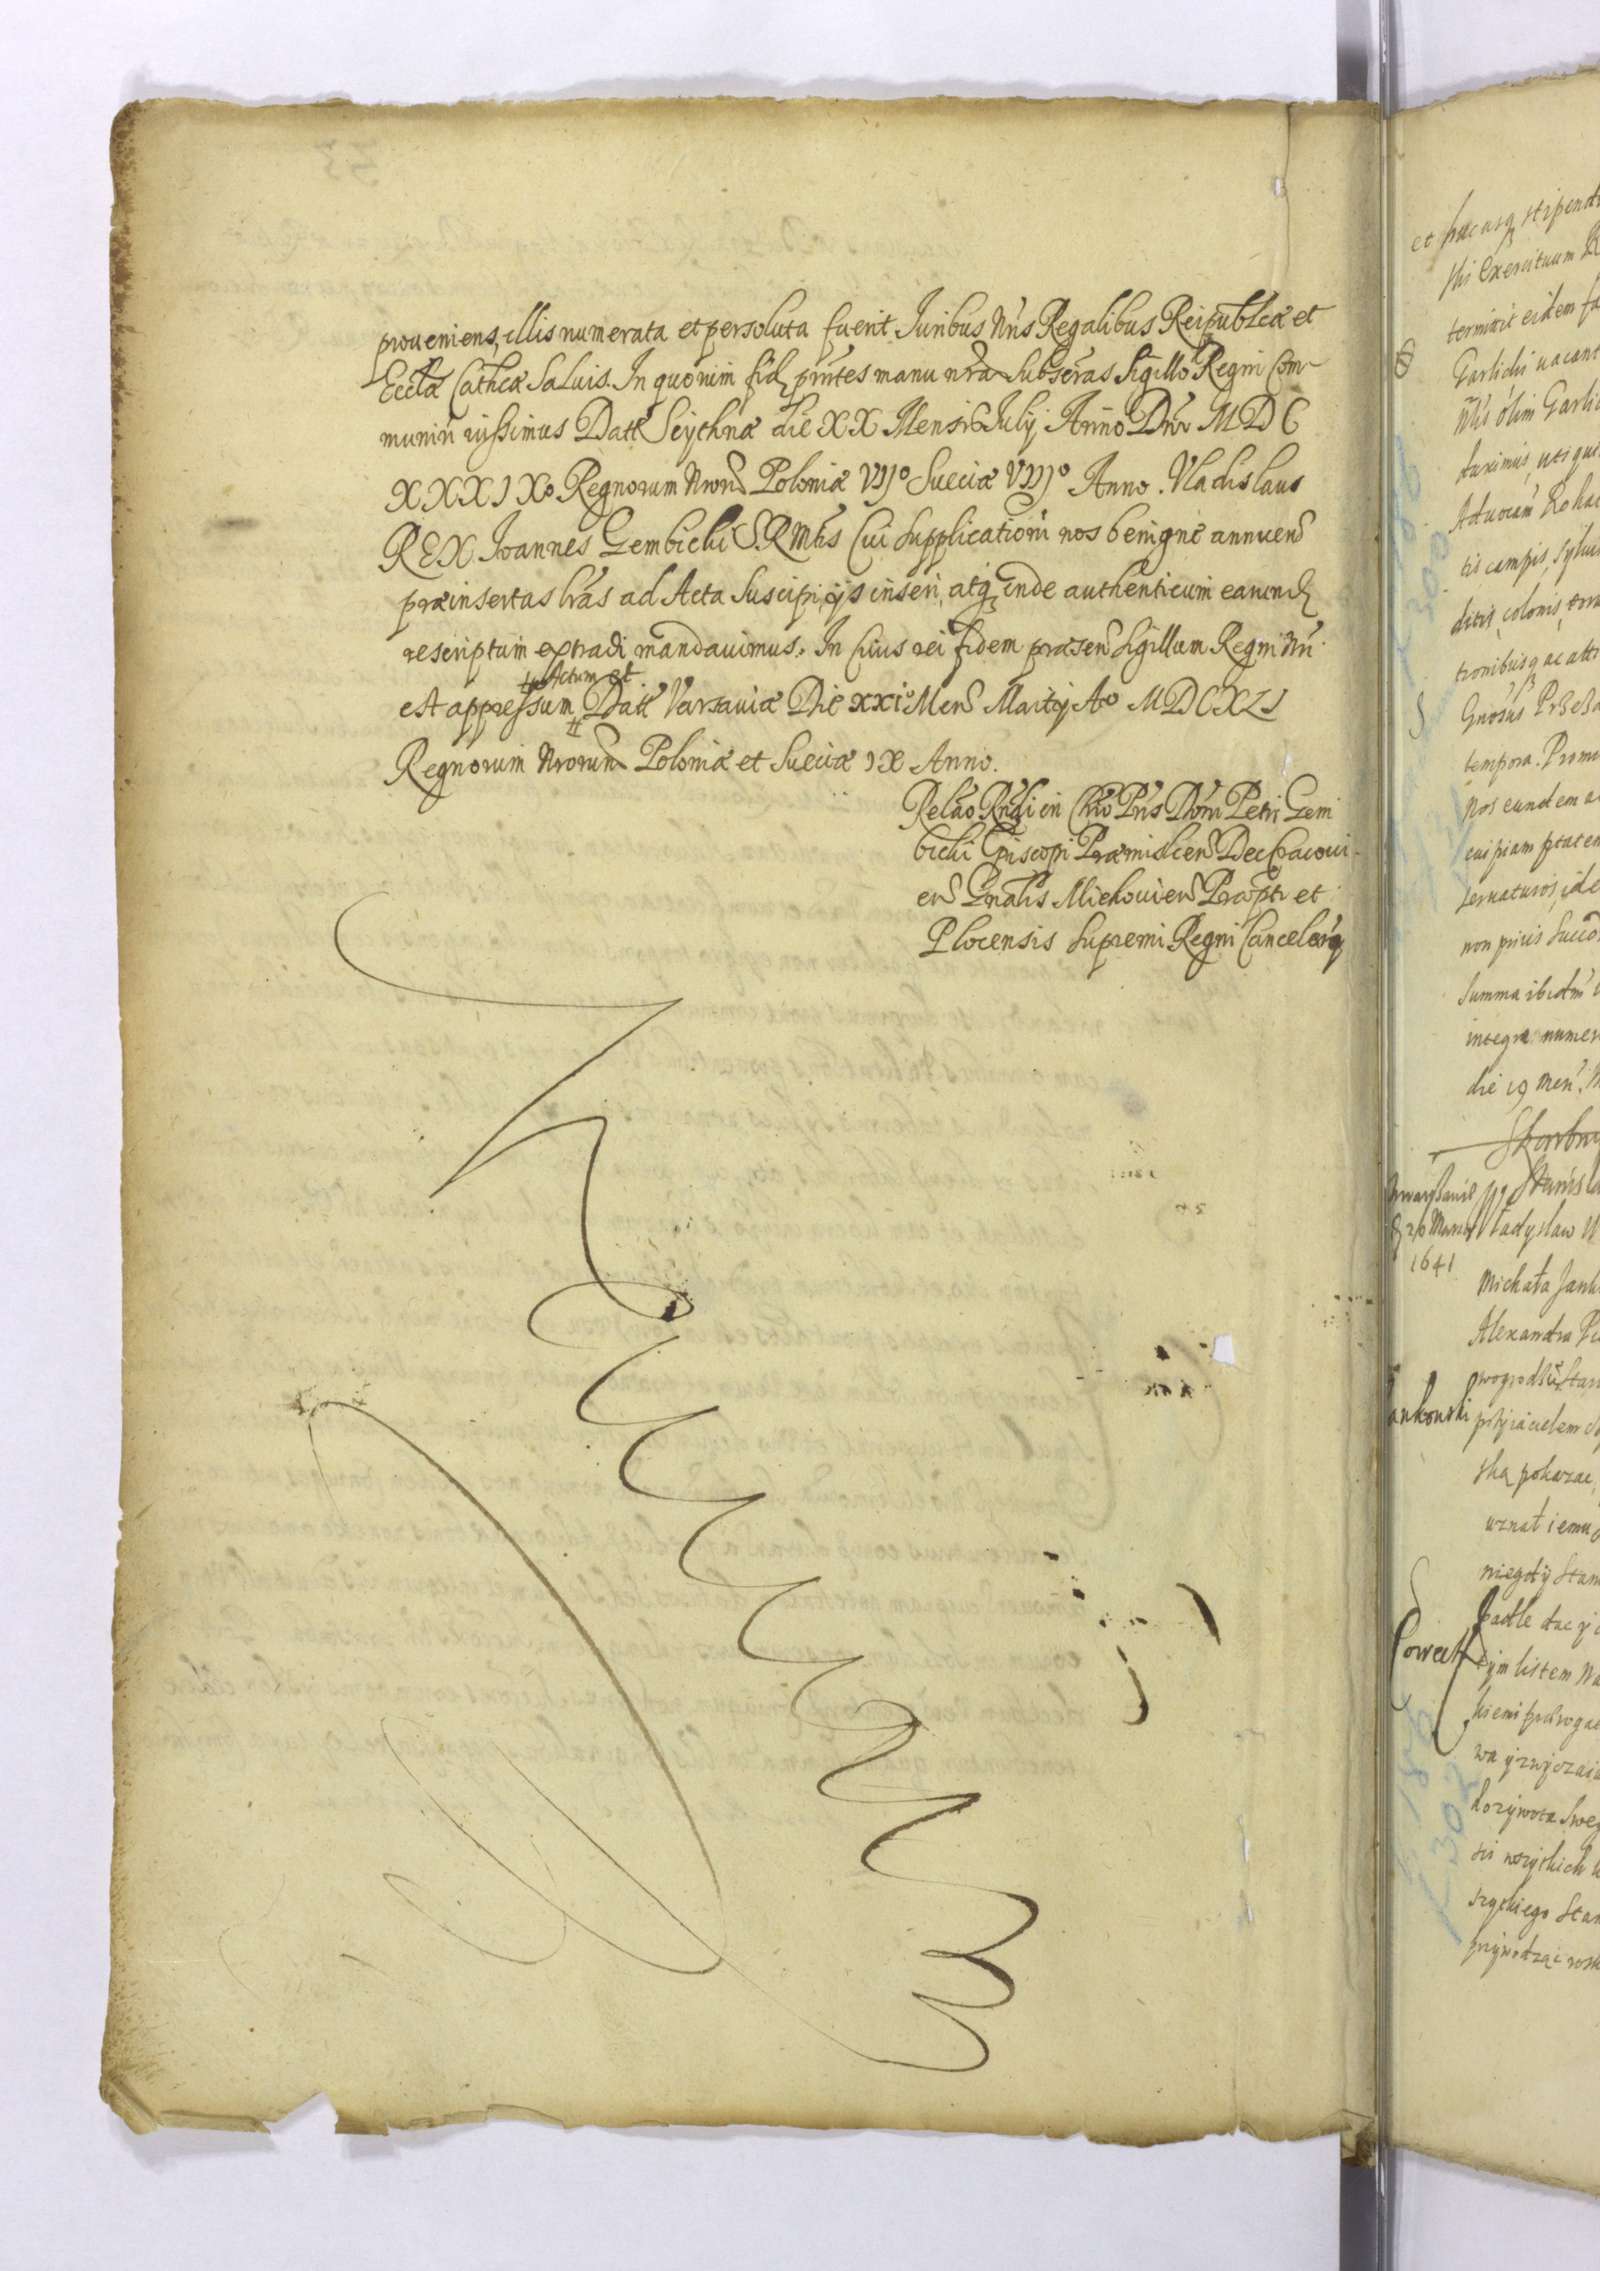 proueniens, illis numerata et persoluta fuerit Juribus Nris Regalibus Reipublcæ et
Eccłæ Cathcæ Saluis. In quorum fid, prntes manu nra Subscras Sigillo Regni Com-
muniri iussimus Datt Seythnæ die XX Mensis Julij Anno Dnr MDC
XXXIXo Regnorum Nrorũ Poloniæ VIIo Sueciæ VIIIo Anno. Vladislaus
REX Joannes Gembicki S.RMtis Cui Supplicationi nos benigne annuen
præinsertas lras ad Acta Suscipi, ijs inseri, atq inde authenticum earund
rescriptum extradi mandauimus. In Cuius rei fidem præsen Sigillum Regni Nri
Actum et
est appressum Datt Varsauiæ Die XXIo Men Martij Ao MDCXLI
Regnorum Nrorum Poloniæ et Sueciæ IX Anno.
Relão Rndi in Chro Pris Dom Petri Gem
bicki Episcopi Præmislien Dec Cracoui-
en Gnalis Miehouien Præpti et
Plocensis Supremi Regni Cancelarij
et hac usq stipendi
Exercituum R
terminit eidem fa
Garlicki uacant
Nlis olim Garlic
duximus, uti qui
Aduocam Rohac
tis campis, Syluis
ditis, colonis,
tionibusq ac atti
tempora. Promi
Nos eundem a
cuipiam ptatem
non prius Succo
Summa ibidm
integre numer
die 19 Men. M
Stanisla
20 Martij Władysław W
1641
Michała Jank
Alexandra Pi
wogrodzk Star
ankowski przyiacielem do
ską pokazac,
uznał iemu
niegdy Stan
padłe dac y
tym listem Na
wa y zwyczaiu
dozywota Sweg
sci wszytkich
szytkiego Stan
przywodząc